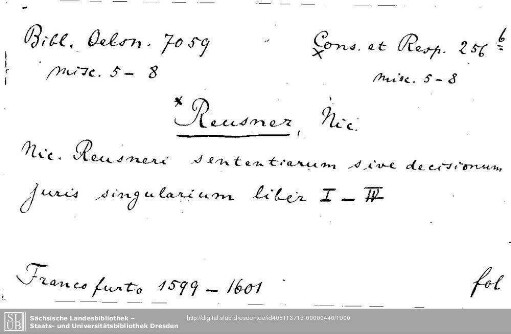 Bibl. Oelsn. 7059
misc. 5 - 8
Cons. et Resp. 256 b
misc. 5 - 8
Reusner, Nic.
Nic. Reusneri sententiarum sive decisionum
juris singularium liber I - IV
Francofurto 1599 - 1601
fol
Sächsische Landesbibliothek –
Staats- und Universitätsbibliothek Dresden